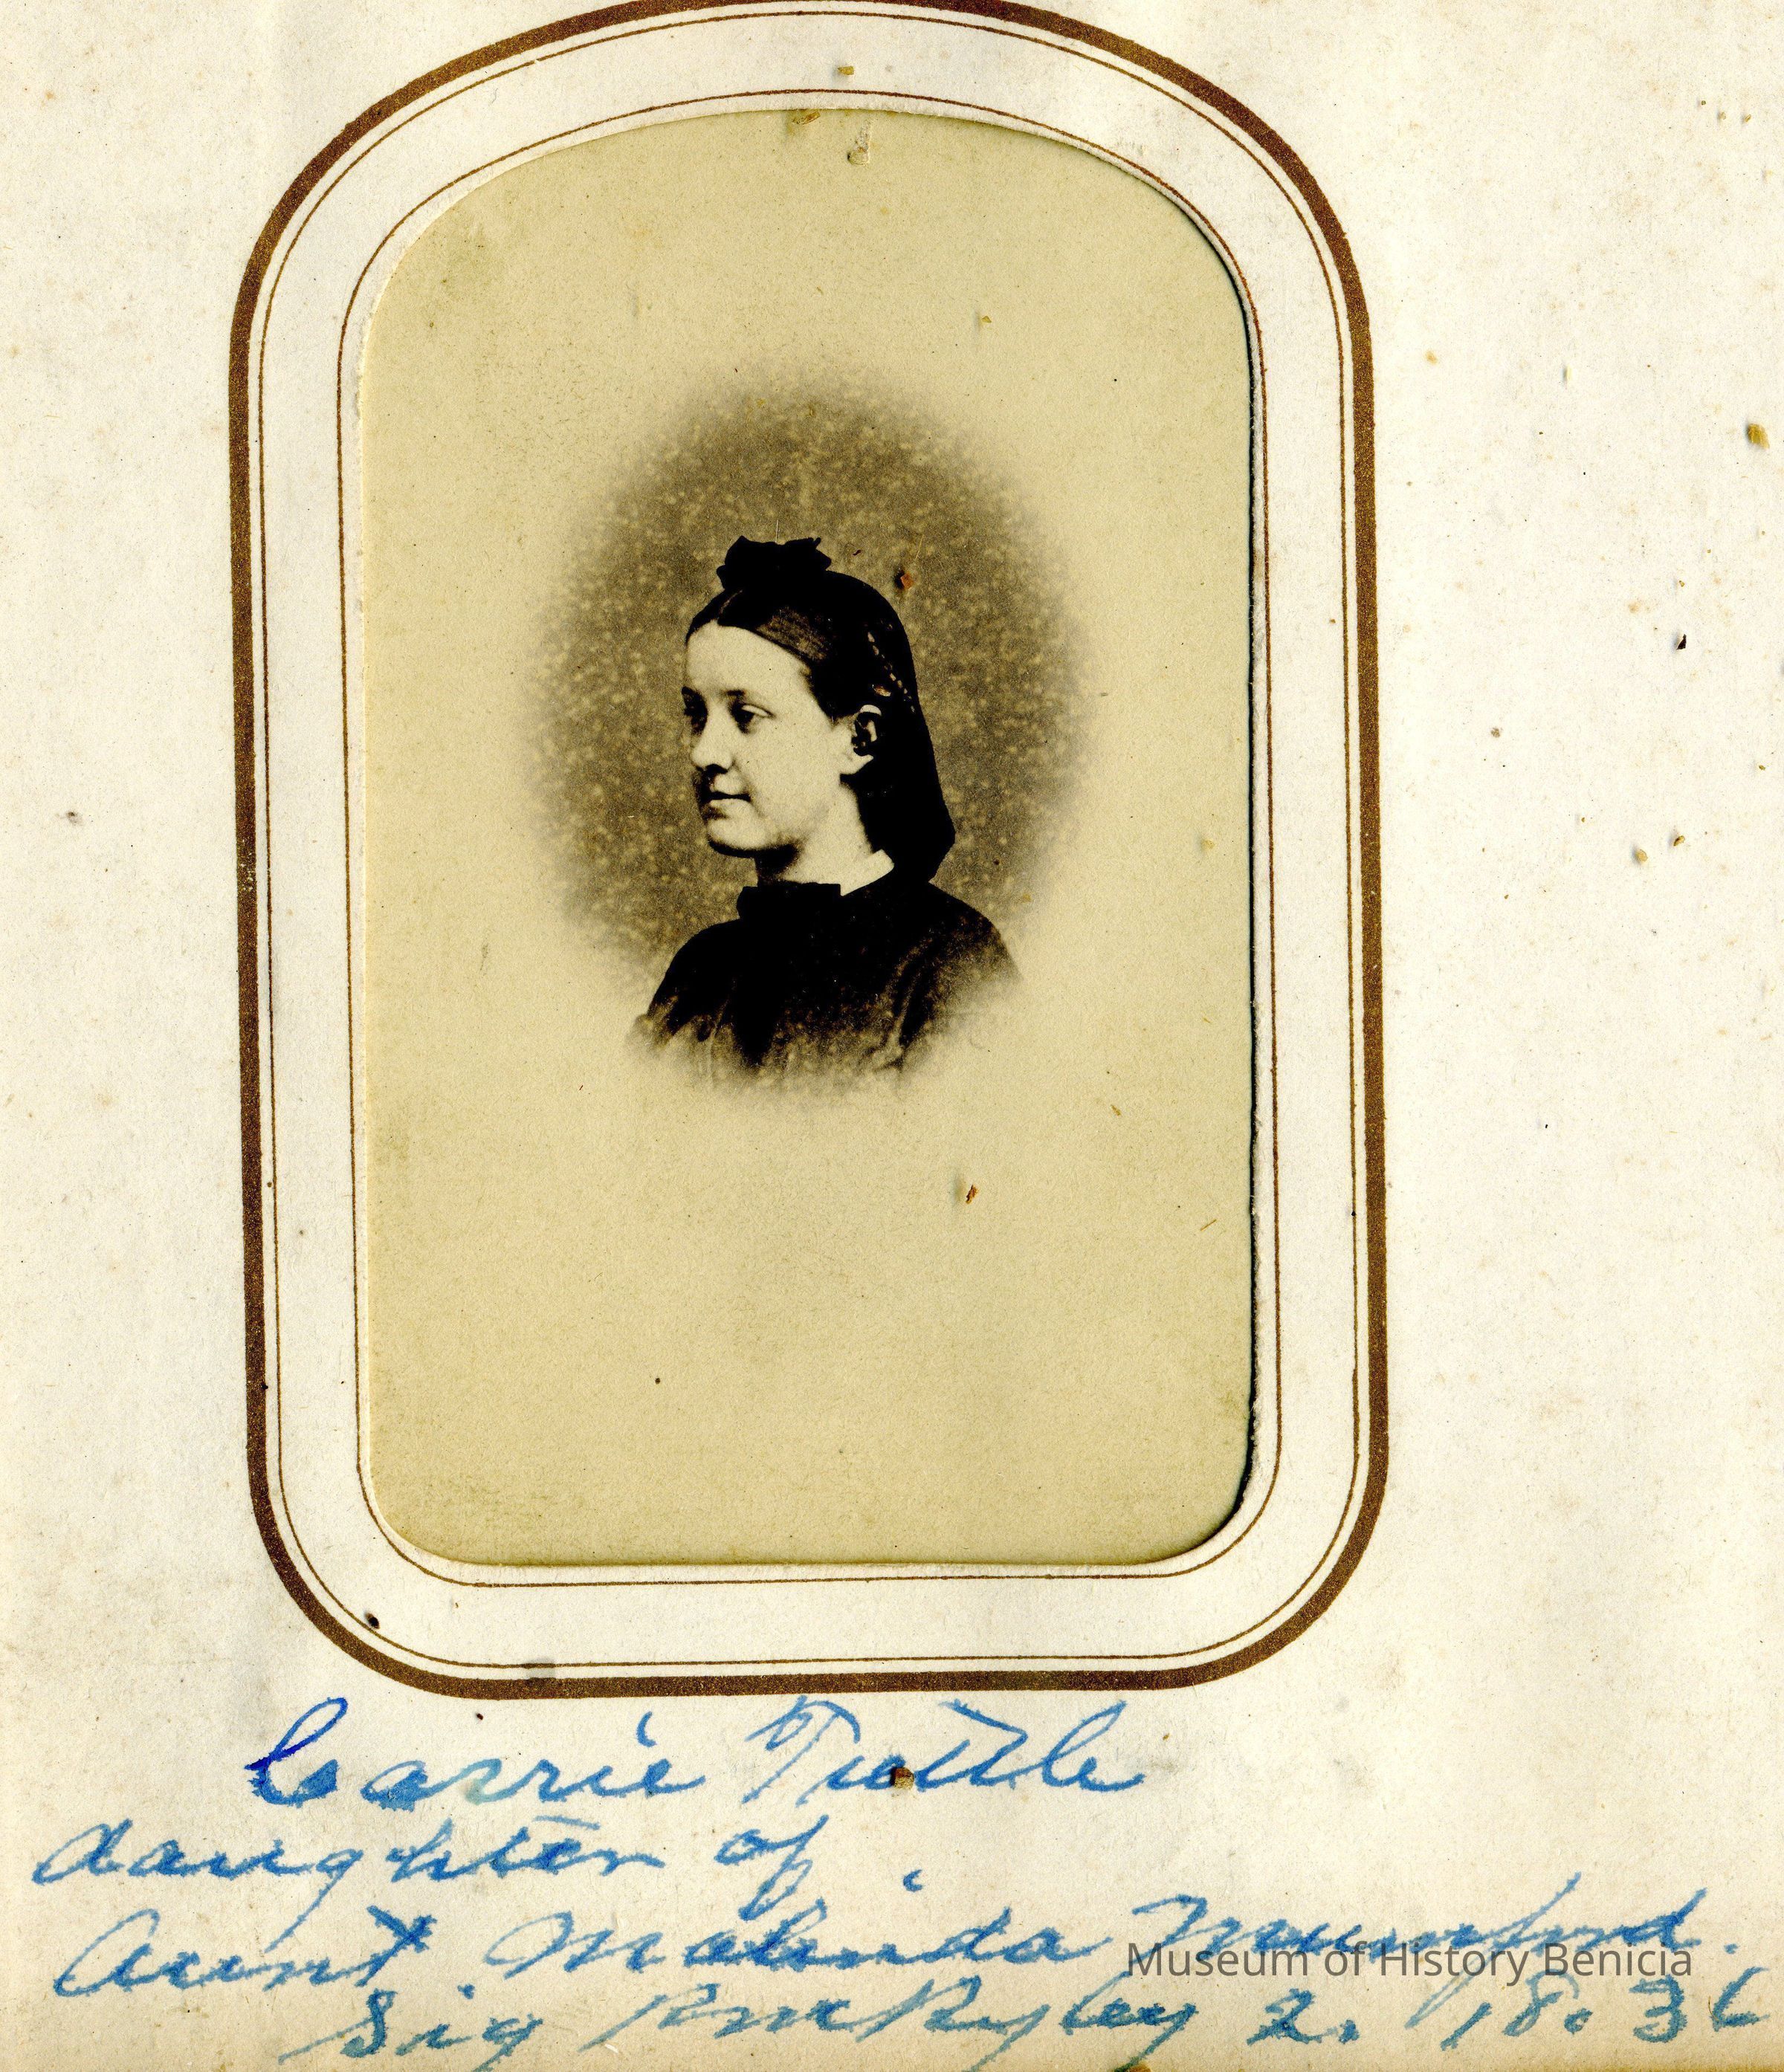 Carrie Tuttle
daughter of
Aunt Malinda
Museum of History Benicia
Sig 2. 18. 36